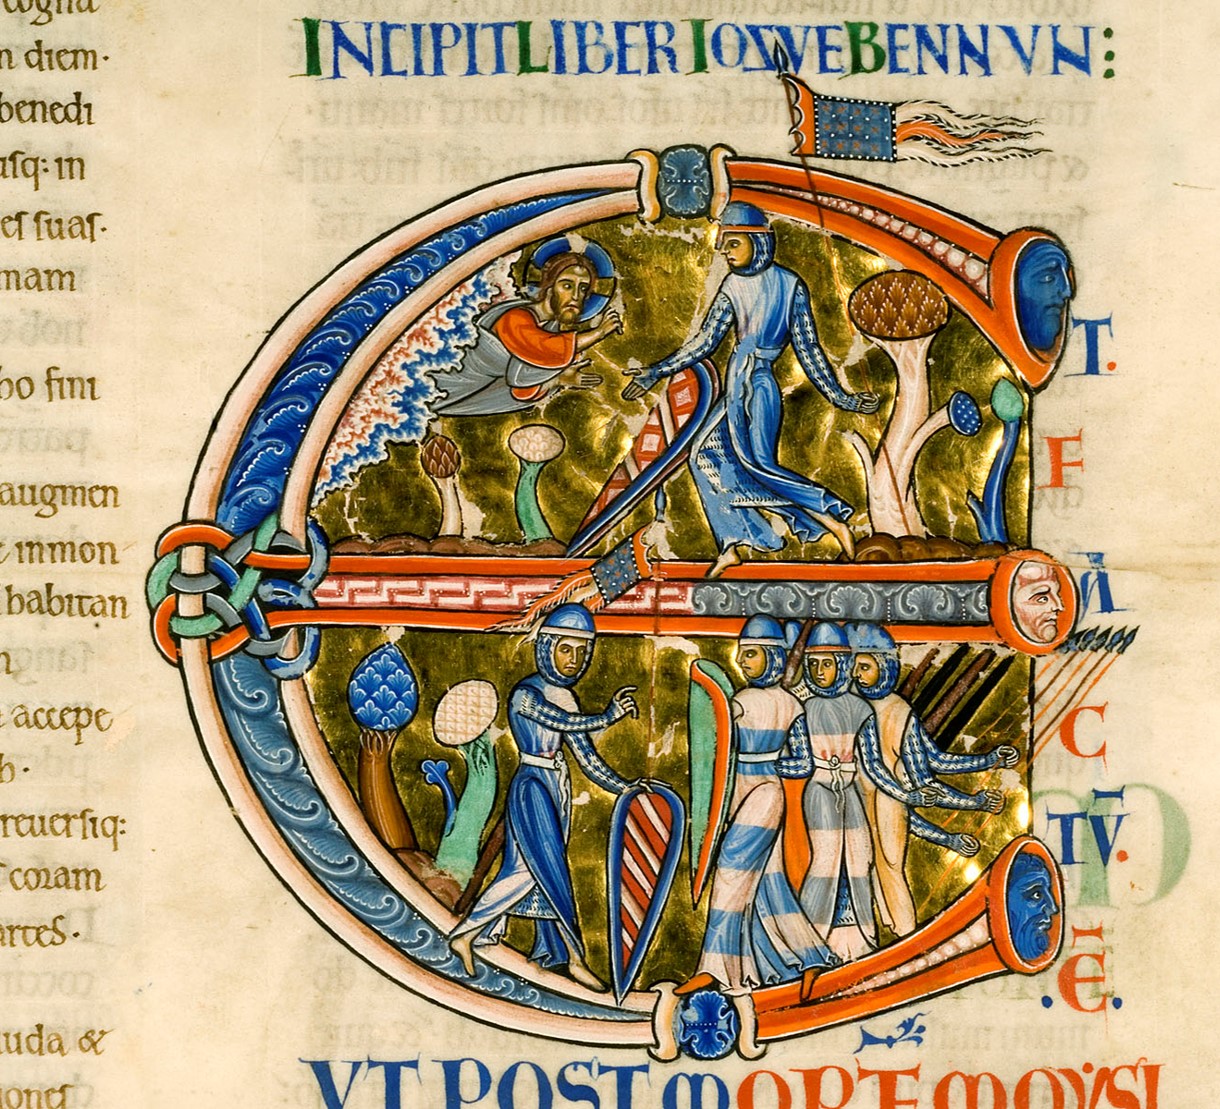 cogna
n diem·
benedi
usq: in
es suas·
mam
bo fini
augmen
t inmon
habitan
n
a accepe
b·
reuersiq:
s coram
artes·
iuda &
iones
INCIPIT LIBER IOSVE BENNVN:
E
T.
F
A
C
TV̄.
.Ē.
VT POST MORTEM MOYSI